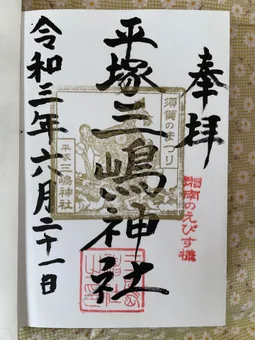 奉拝
須賀のまつり
平塚三嶋神社
湘南のえびす様
平塚三嶋神社
令和三年六月二十一日